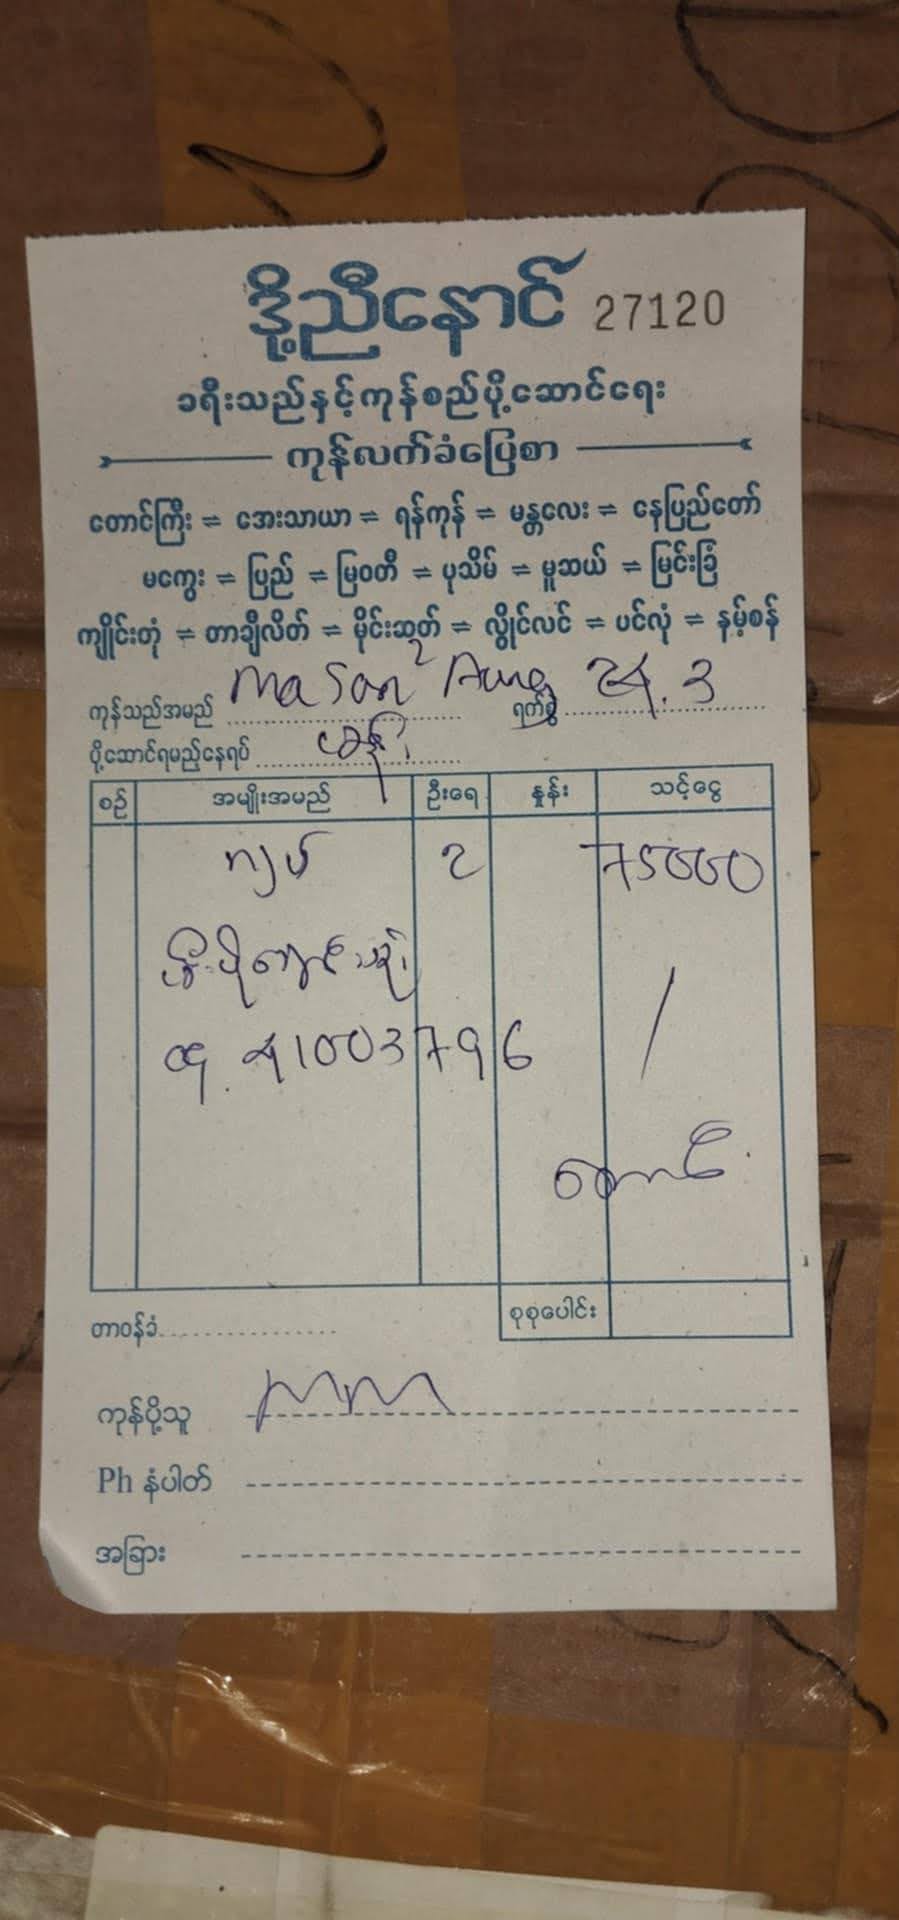 ဒို့ညီနောင် 27120
ခရီးသည်နှင့်ကုန်စည်ပို့ဆောင်ရေး
ကုန်လက်ခံပြေစာ
တောင်ကြီး = အေးသာယာ = ရန်ကုန် = မန္တလေး = နေပြည်တော်
မကွေး = ပြည် = မြဝတီ = ပုသိမ် = မူဆယ် = မြင်းခြံ
ကျိုင်းတုံ = တာချီလိတ် = မိုင်းဆတ် = လွိုင်လင် = ပင်လုံ = နမ့်စန်
ကုန်သည်အမည် Ma San2 Aung ရက်စွဲ 24.3
ပို့ဆောင်ရမည့်နေရပ်
စဉ် အမျိုးအမည် ဦးရေ နှုန်း သင့်ငွေ
၂ 75000
09. 41003796
တောင်
စုစုပေါင်း
တာဝန်ခံ
ကုန်ပို့သူ
Ph နံပါတ်
အခြား